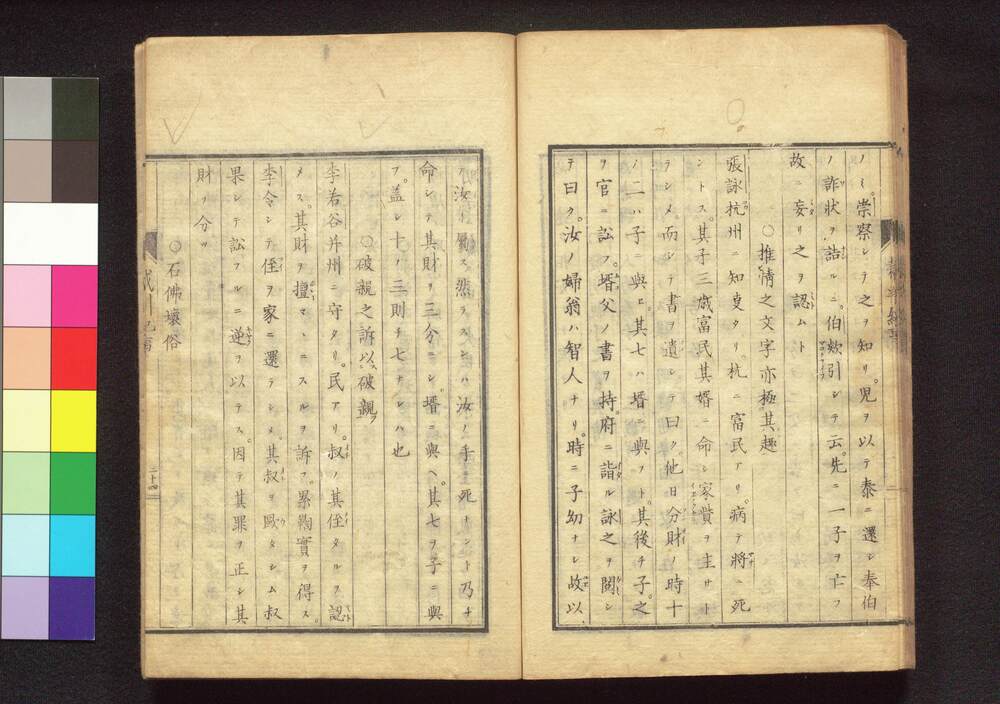 ノミ。崇察シテ之ヲ知リ。児ヲ以テ泰ニ還シ奉伯
ノ詐状ヲ詰ルニ。伯欸引シテ云。先ニ一子ヲ亡フ
故ニ妄リ之ヲ認ムト
○推情之文字亦極其趣
張詠杭州ニ知タリ。杭ニ富民アリ。病テ將ニ死
ントス。其子三歳富民其婿ニ命シ家貲ヲ主サト
ラシメ。而シテ書ヲ遺シテ曰ク。他日分財ノ時十
ノ二ハ子ニ與ヒ。其七ハ壻ニ與フト。其後チ子。之
ヲ官ニ訟フ。壻父ノ書ヲ持。府ニ詣ル詠之ヲ閲シ
テ曰ク。汝ノ婦翁ハ智人ナリ。時ニ子幼ナシ故以
テ汝ト屬ス然ラスンハ汝ノ手ニ死ナント乃チ
命シテ其財ヲ三分ニシ。壻ニ與ヘ。其七ヲ子ニ與
フ。盖シ十ノ三則チ七ナレハ也
○破親之訴以破親
李若谷并州ニ守タリ。民アリ。叔ノ其侄タルヲ認
メス。其財ヲ擅マヽニスルヲ訴フ。累鞫實ヲ得ス。
李令シテ侄ヲ家ニ還テシメ。其叔ヲ歐タシム叔
果シテ訟フルニ逆ヲ以テス。因テ其罪ヲ正シ其
財ヲ分ツ
○石佛壞俗
二十四